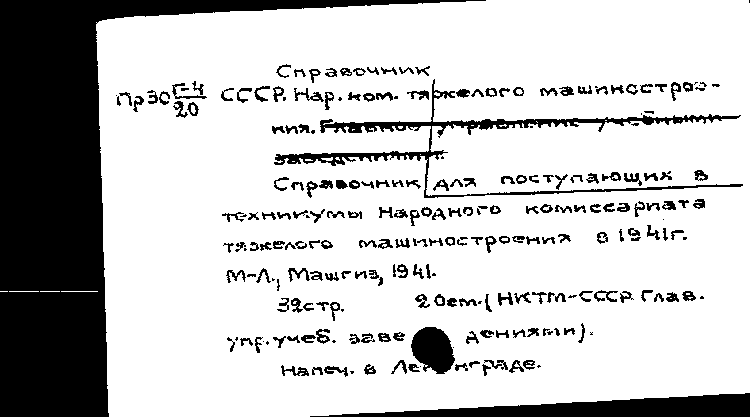 Справочник
Пр30 Г-4/20 СССР. Нар. ком. тяжелого машинострое-
ния. Главное управление учебными
заведениями.
Справочник для поступающих в
техникумы Народного комиссариата
тяжелого машиностроения в 1941г.
М-Л., Машгиз, 1941.
32стр. 20см. (НКТМ-СССР. Глав.
упр. учеб. заведениями).
Напеч. в Ленинграде.